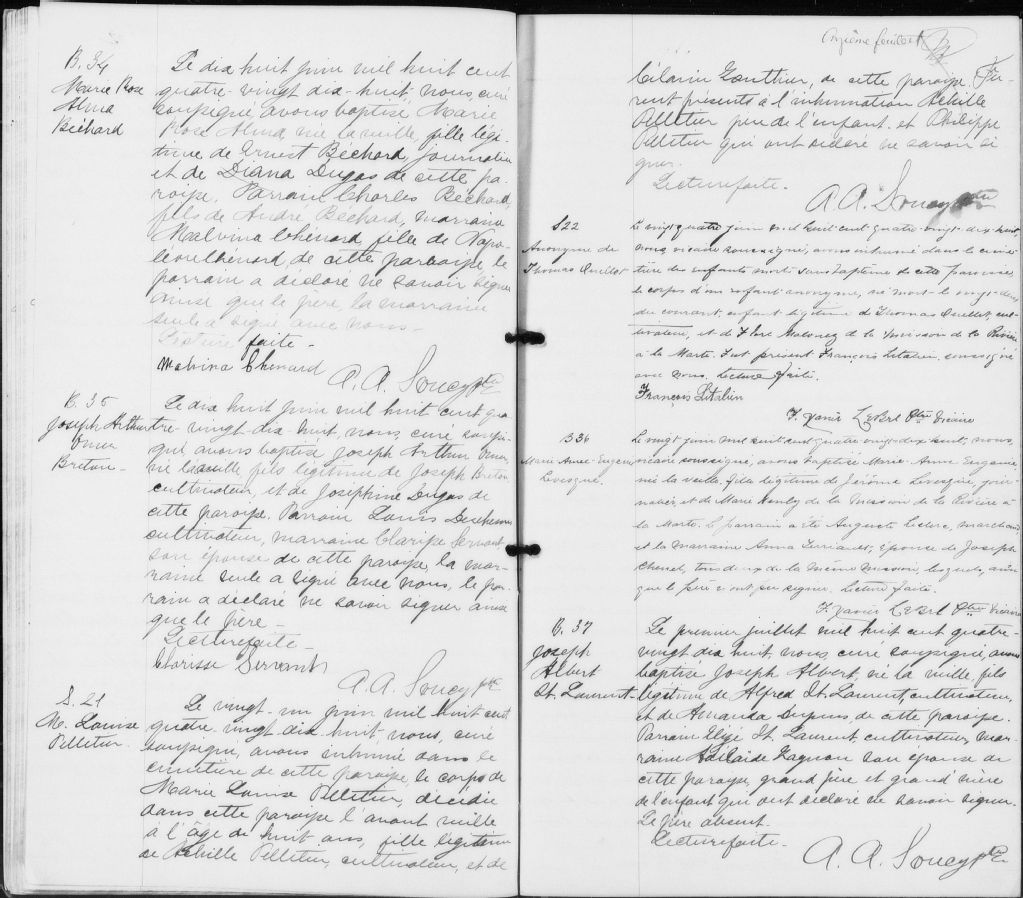 B. 34
Marie Rose
Alma
Béchard
Le dix huit juin mil huit cent
quatre-vingt dix-huit, nous, curé
soussigné, avons baptisé Marie
Rose Alma, née la veille, fille légi-
time de Ernest Béchard, journalier
et de Diana Dugas de cette pa-
roisse. Parrain Charles Béchard,
fils de André Béchard, marraine
Malvina Chénard, fille de Napo-
léon Chénard de cette paroisse, le
parrain a déclaré ne savoir signer
ainsi que le père, la marraine
seule a signé avec nous.-
Lecture faite -
Malvina Chenard
A. A. Soucy ptre
B. 35
Joseph Arthur
Omer
Breton -
Le dix huit juin mil huit cent qua
tre-vingt-dix-huit, nous, curé soussi-
gné avons baptisé Joseph Arthur Omer,
né la veille fils légitime de Joseph Breton
cultivateur, et de Joséphine Dugas de
cette paroisse. Parrain Louis Duchesne
cultivateur, marraine Clarisse Servant,
son épouse de cette paroisse, la mar-
raine seule a signé avec nous, le par-
rain a déclaré ne savoir signer ainsi
que le père -
Lecture faite -
Clarisse Servant
A. A. Soucy ptre
S. 21
M. Louise
Pelletier -
Le vingt-un juin mil huit cent
quatre-vingt dix huit nous, curé
soussigné, avons inhumé dans le
cimetière de cette paroisse, le corps de
Marie Louise Pelletier, décédée
dans cette paroisse l'avant veille
à l'âge de huit ans, fille légitime
de Achille Pelletier, cultivateur, et de
Onzième feuillet
Gauthier, de cette paroisse. Fu-
rent présents à l'inhumation Achille
Pelletier père de l'enfant et Philippe
Pelletier qui ont déclaré ne savoir si
gner.
Lecture faite -
A. A. Soucy ptre
S22
Anonyme de
Thomas Ouellet
Le vingt quatre juin mil huit cent quatre-vingt-dix-huit
nous vicaire soussigné, avons inhumé dans le cime-
tière des enfants morts sans baptême de cette paroisse,
le corps d'un enfant anonyme, né mort le vingt-deux
du courant, enfant légitime de Thomas Ouellet, cul-
tivateur, et de Flore Maloney de la mission de la Rivière
à la Marte. Fut présent François Litalien, soussigné
avec nous. Lecture faite.
François Litalien
F. Xavier Lebel Ptre Vicaire
B36
Marie-Anne-Eugénie
Levesque.
Le vingt juin mil huit cent quatre vingt-dix huit, nous,
vicaire soussigné, avons baptisé Marie-Anne Eugénie,
née la veille, fille légitime de Jérôme Levesque, jour-
nalier, et de Marie Henley de la Mission de la Rivière à
la Marte. Le parrain a été Auguste Leclerc, marchand,
et la marraine Anna Therriault, épouse de Joseph
tous deux de la même mission, lesquels, ainsi
que le père n'ont pu signer. Lecture faite.
F. Xavier Lebel Ptre Vicaire
B. 37
Joseph
Albert
St. Laurent -
Le premier juillet mil huit cent quatre-
vingt dix huit nous curé soussigné, avons
baptisé Joseph Albert, né la veille, fils
légitime de Alfred St. Laurent, cultivateur,
et de Amanda Dupuis, de cette paroisse.
Parrain Elzé St. Laurent cultivateur, mar-
raine Adélaïde Gagnon son épouse de
cette paroisse, grand père et grand'mère
de l'enfant qui ont déclaré ne savoir signer.
Le père absent.
Lecture faite -
A. A. Soucy ptre.